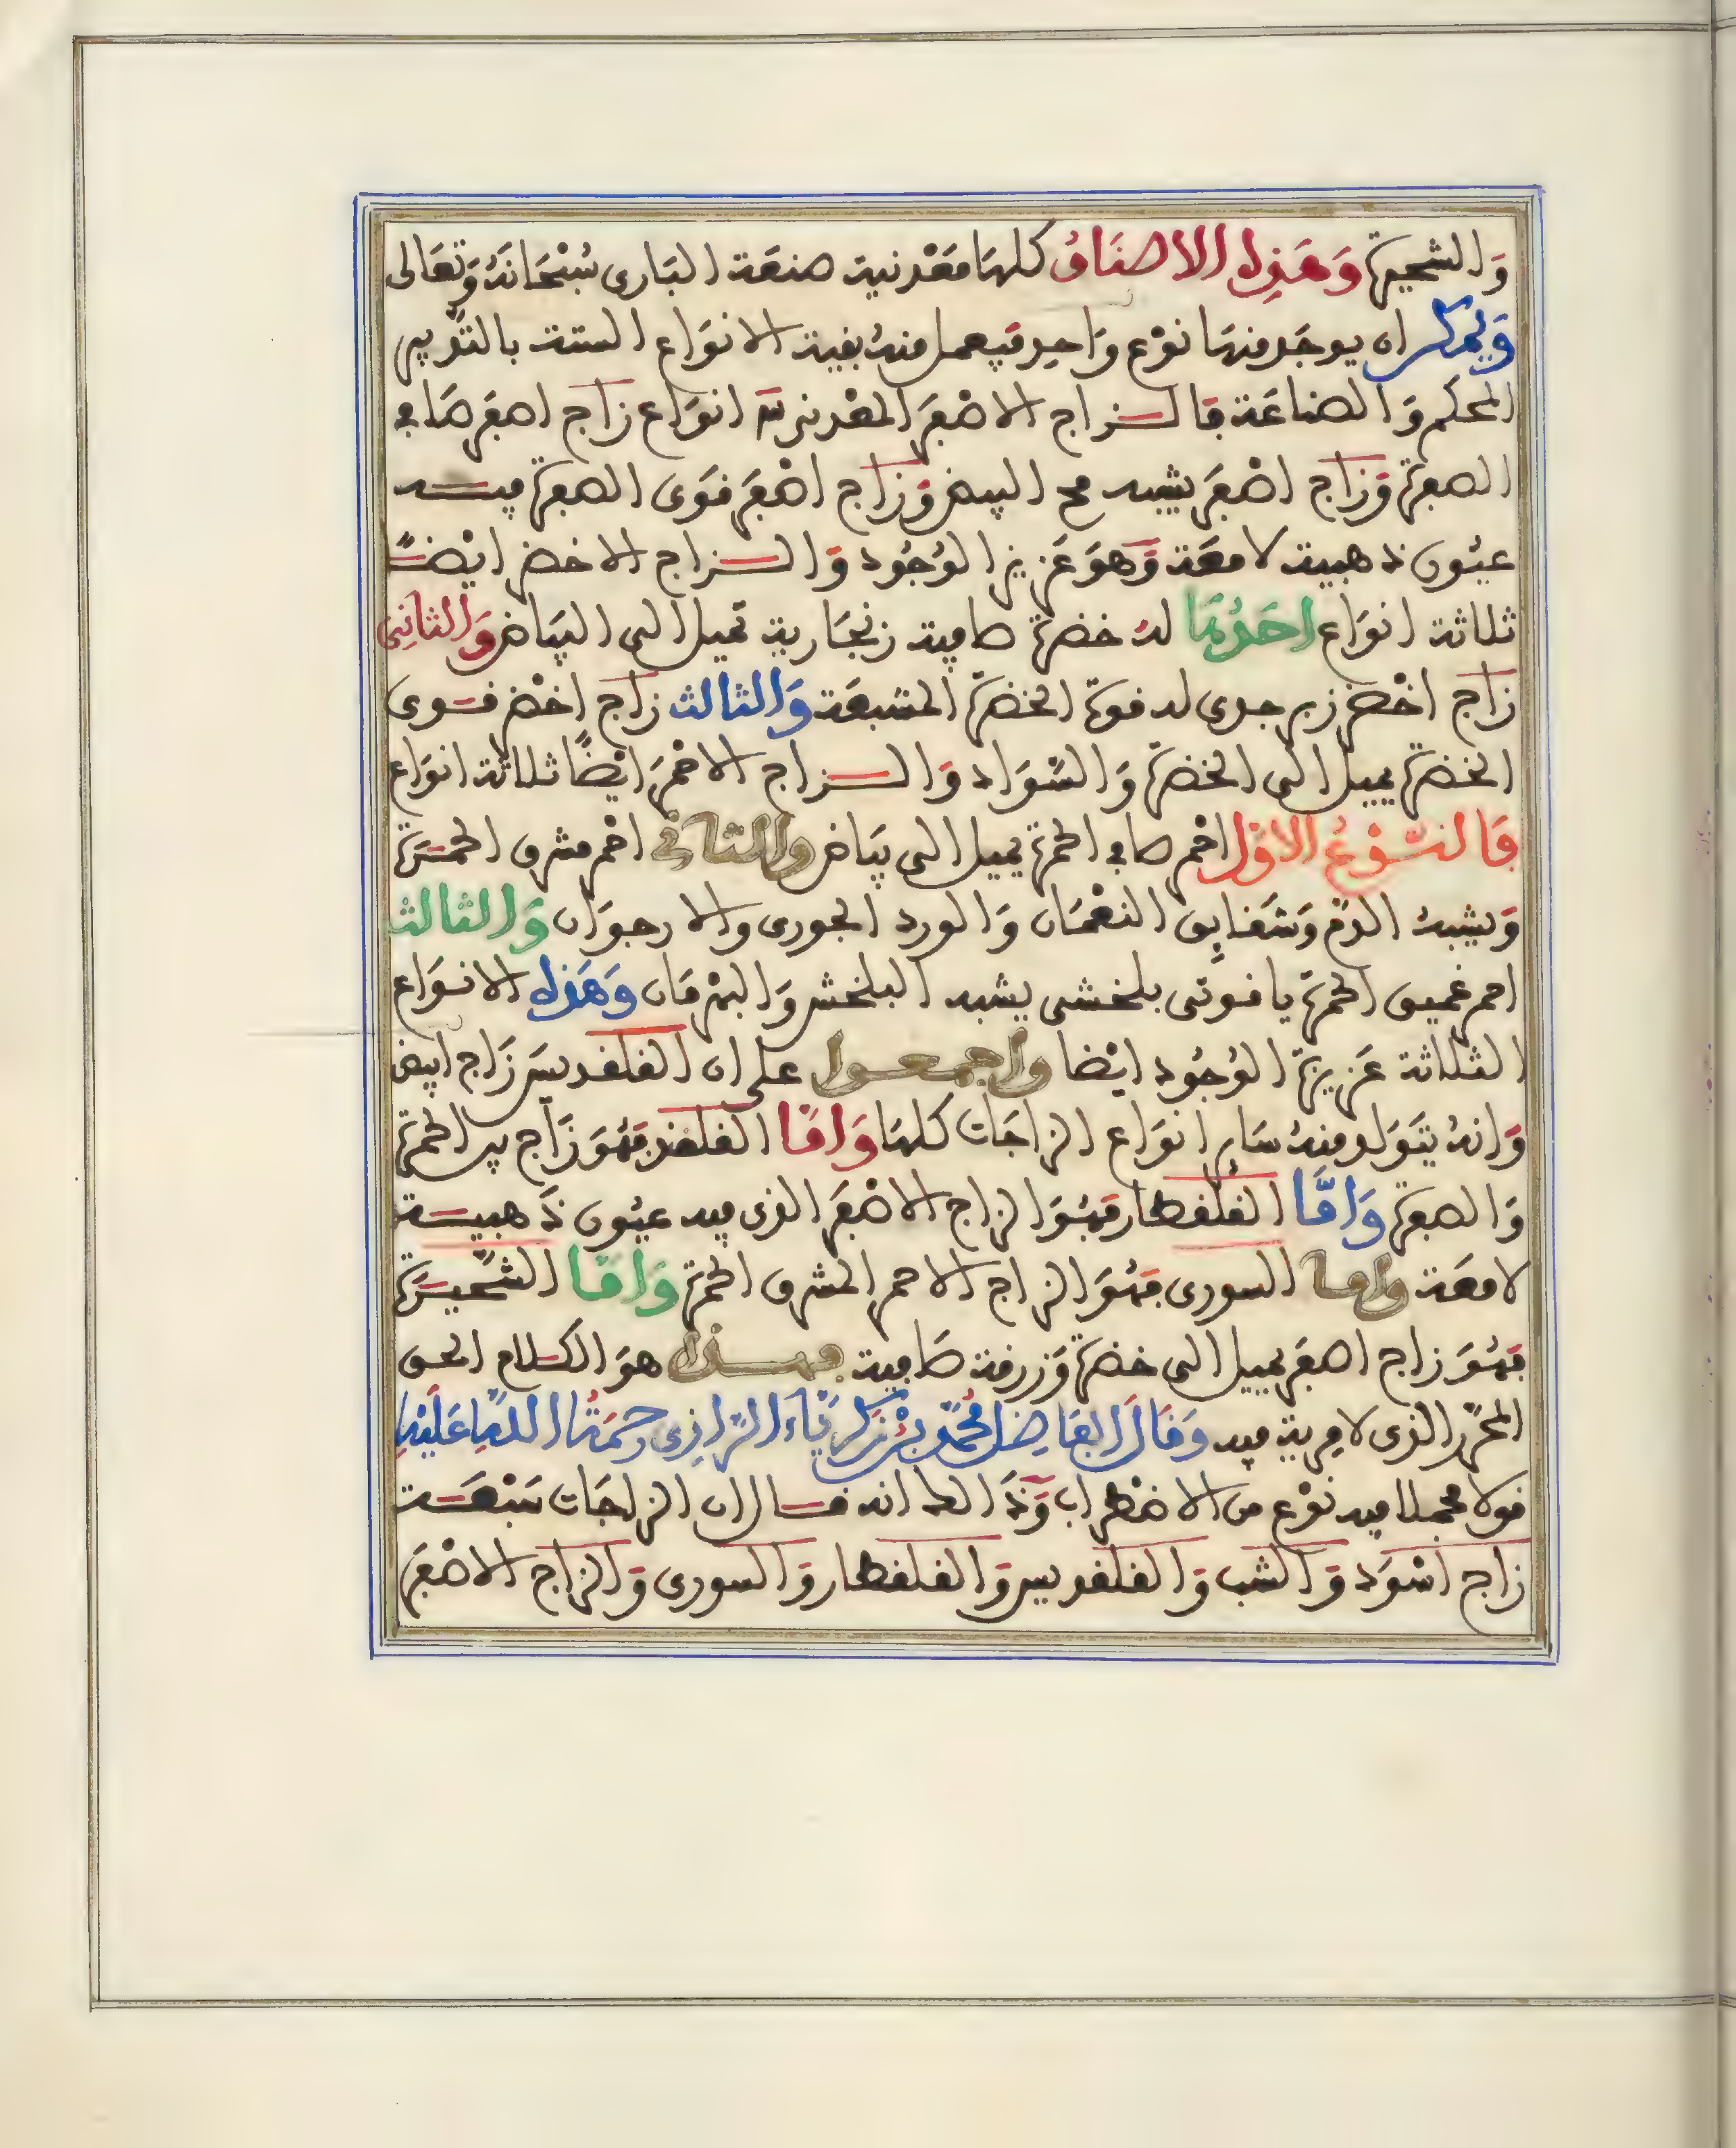 وَالشحيرة وَهَذِه الاصنَافُ كلهَا مَعْدنية صنعَة البَارى سُبْحَانَهُ وَتعَالى
وَيمكن ان يوجَد منهَا نوْع وَاحِد فيعمل منهُ بقية الانوَاع الستة بالتدبير
المحكم وَالصناعَة فالزاج الاصْفَر المعْدنى ثلاثة انوَاع زاج اصفر صَافى
الصفرة وَزاج اصْفَر يشبه مح البيض وَزاج اصْفَر قوَى الصفرة فيه
عيُون ذهبية لامعَة وَهوَ عَزيز الوُجُود وَالزاج الاخضر ايْضًا
ثلاثة انوَاع احَدُهَا لهُ خضرة صافية زنجَارية تميل الى البيَاض وَالثانِى
زاج اخْضر زبرجدى له قوة الخضرة المشبعَة وَالثالث زاج اخْضر قوى
الخضرة يميل الى الخضرة وَالسَّوَاد وَالزاج الاحْمَر ايْضًا ثلاثة انوَاع
فالنوْعُ الاوّل احْمر صافى الحمرة يميل الى بيَاض والثانى احْمر مشرق الحمْرَة
وَيشبهُ الدّم وَشقايق النعْمَان وَالورد الجورى والارجوَان وَالثالث
احمر عَميق الحمرَة ياقوتى بلخشى يشبه البلخش وَالبهْرمَان وَهَذِه الانوَاع
الثلاثة عَزيزة الوُجُود ايْضا واجمعوا على ان القلقديس زَاج ابيض
وَانهُ يتوَلد منهُ سَاير انوَاع الزاجَات كلهَا وَامّا القلقند فهُوَ زَاج بين الحمرة
وَالصفرة وَامَّا القلقطار فهُوَ الزاج الاصْفَر الذى فيه عيُون ذَهبية
لامعَة واما السورى فهُوَ الزاج الاحمر المشرق الحمرة وَامّا الشَّحيْرَة
فهُوَ زاج اصفر يميل الى خضرة وَزرقة صَافية فهذا هوَ الكلام الحق
المحرّر الذى لا مِرية فيه وَقَالَ الفَاضِل مُحمّد بْن زكرِيّاءَ الرّازِى رحمَةُ اللهِ عَليْهِ
قولا مجملا فيه نوْع من الاضطراب وَذَلك انه قال ان الزاجَات سَبْعَة
زاج اسْوَد وَالشب وَالقلقديس وَالقلقطار وَالسورى وَالزاج الاصْفَر